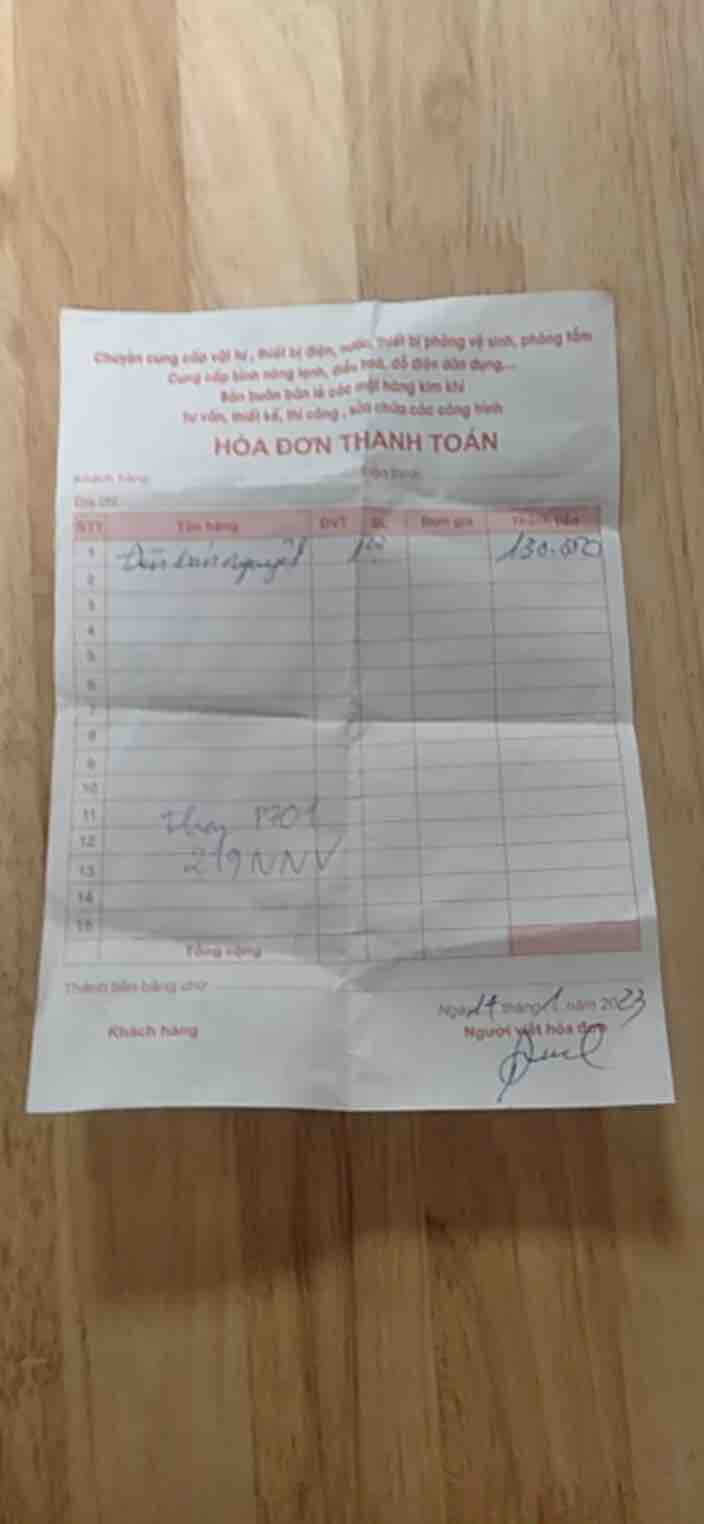 Chuyên cung cấp vật tư, thiết bị điện, nước, thiết bị phòng vệ sinh, phòng tắm
Cung cấp bình nóng lạnh, điều hoà, đồ điện dân dụng...
Bán buôn bán lẻ các mặt hàng kim khí
Tư vấn, thiết kế, thi công, sửa chữa các công trình
HÓA ĐƠN THANH TOÁN
Khách hàng
Địa chỉ
STT Tên hàng ĐVT SL Đơn giá Thành tiền
1 Đèn bán nguyệt 130.000
2
3
4
5
6
7
8
9
10
11 thay P701
12 219 NNV
13
14
15
Tổng cộng
Thành tiền bằng chữ
Ngày 14 tháng 1 năm 2023
Khách hàng Người viết hóa đơn